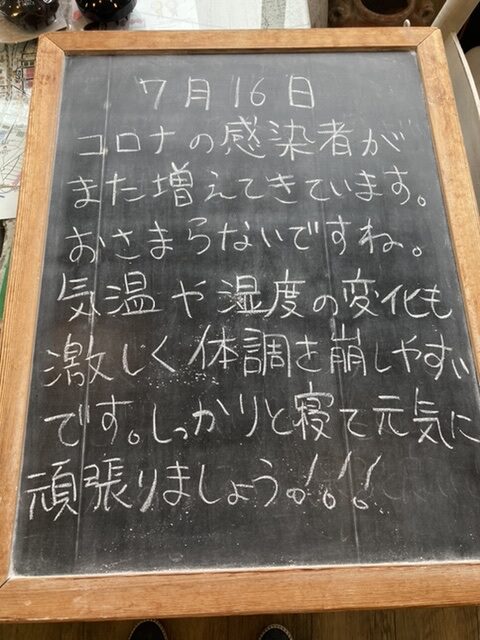 7月16日
コロナの感染者が
また増えてきています。
おさまらないですね。
気温や湿度の変化も
激じく体調を崩しやすい
です。しっかりと寝て元気に
頑張りましょう!!!